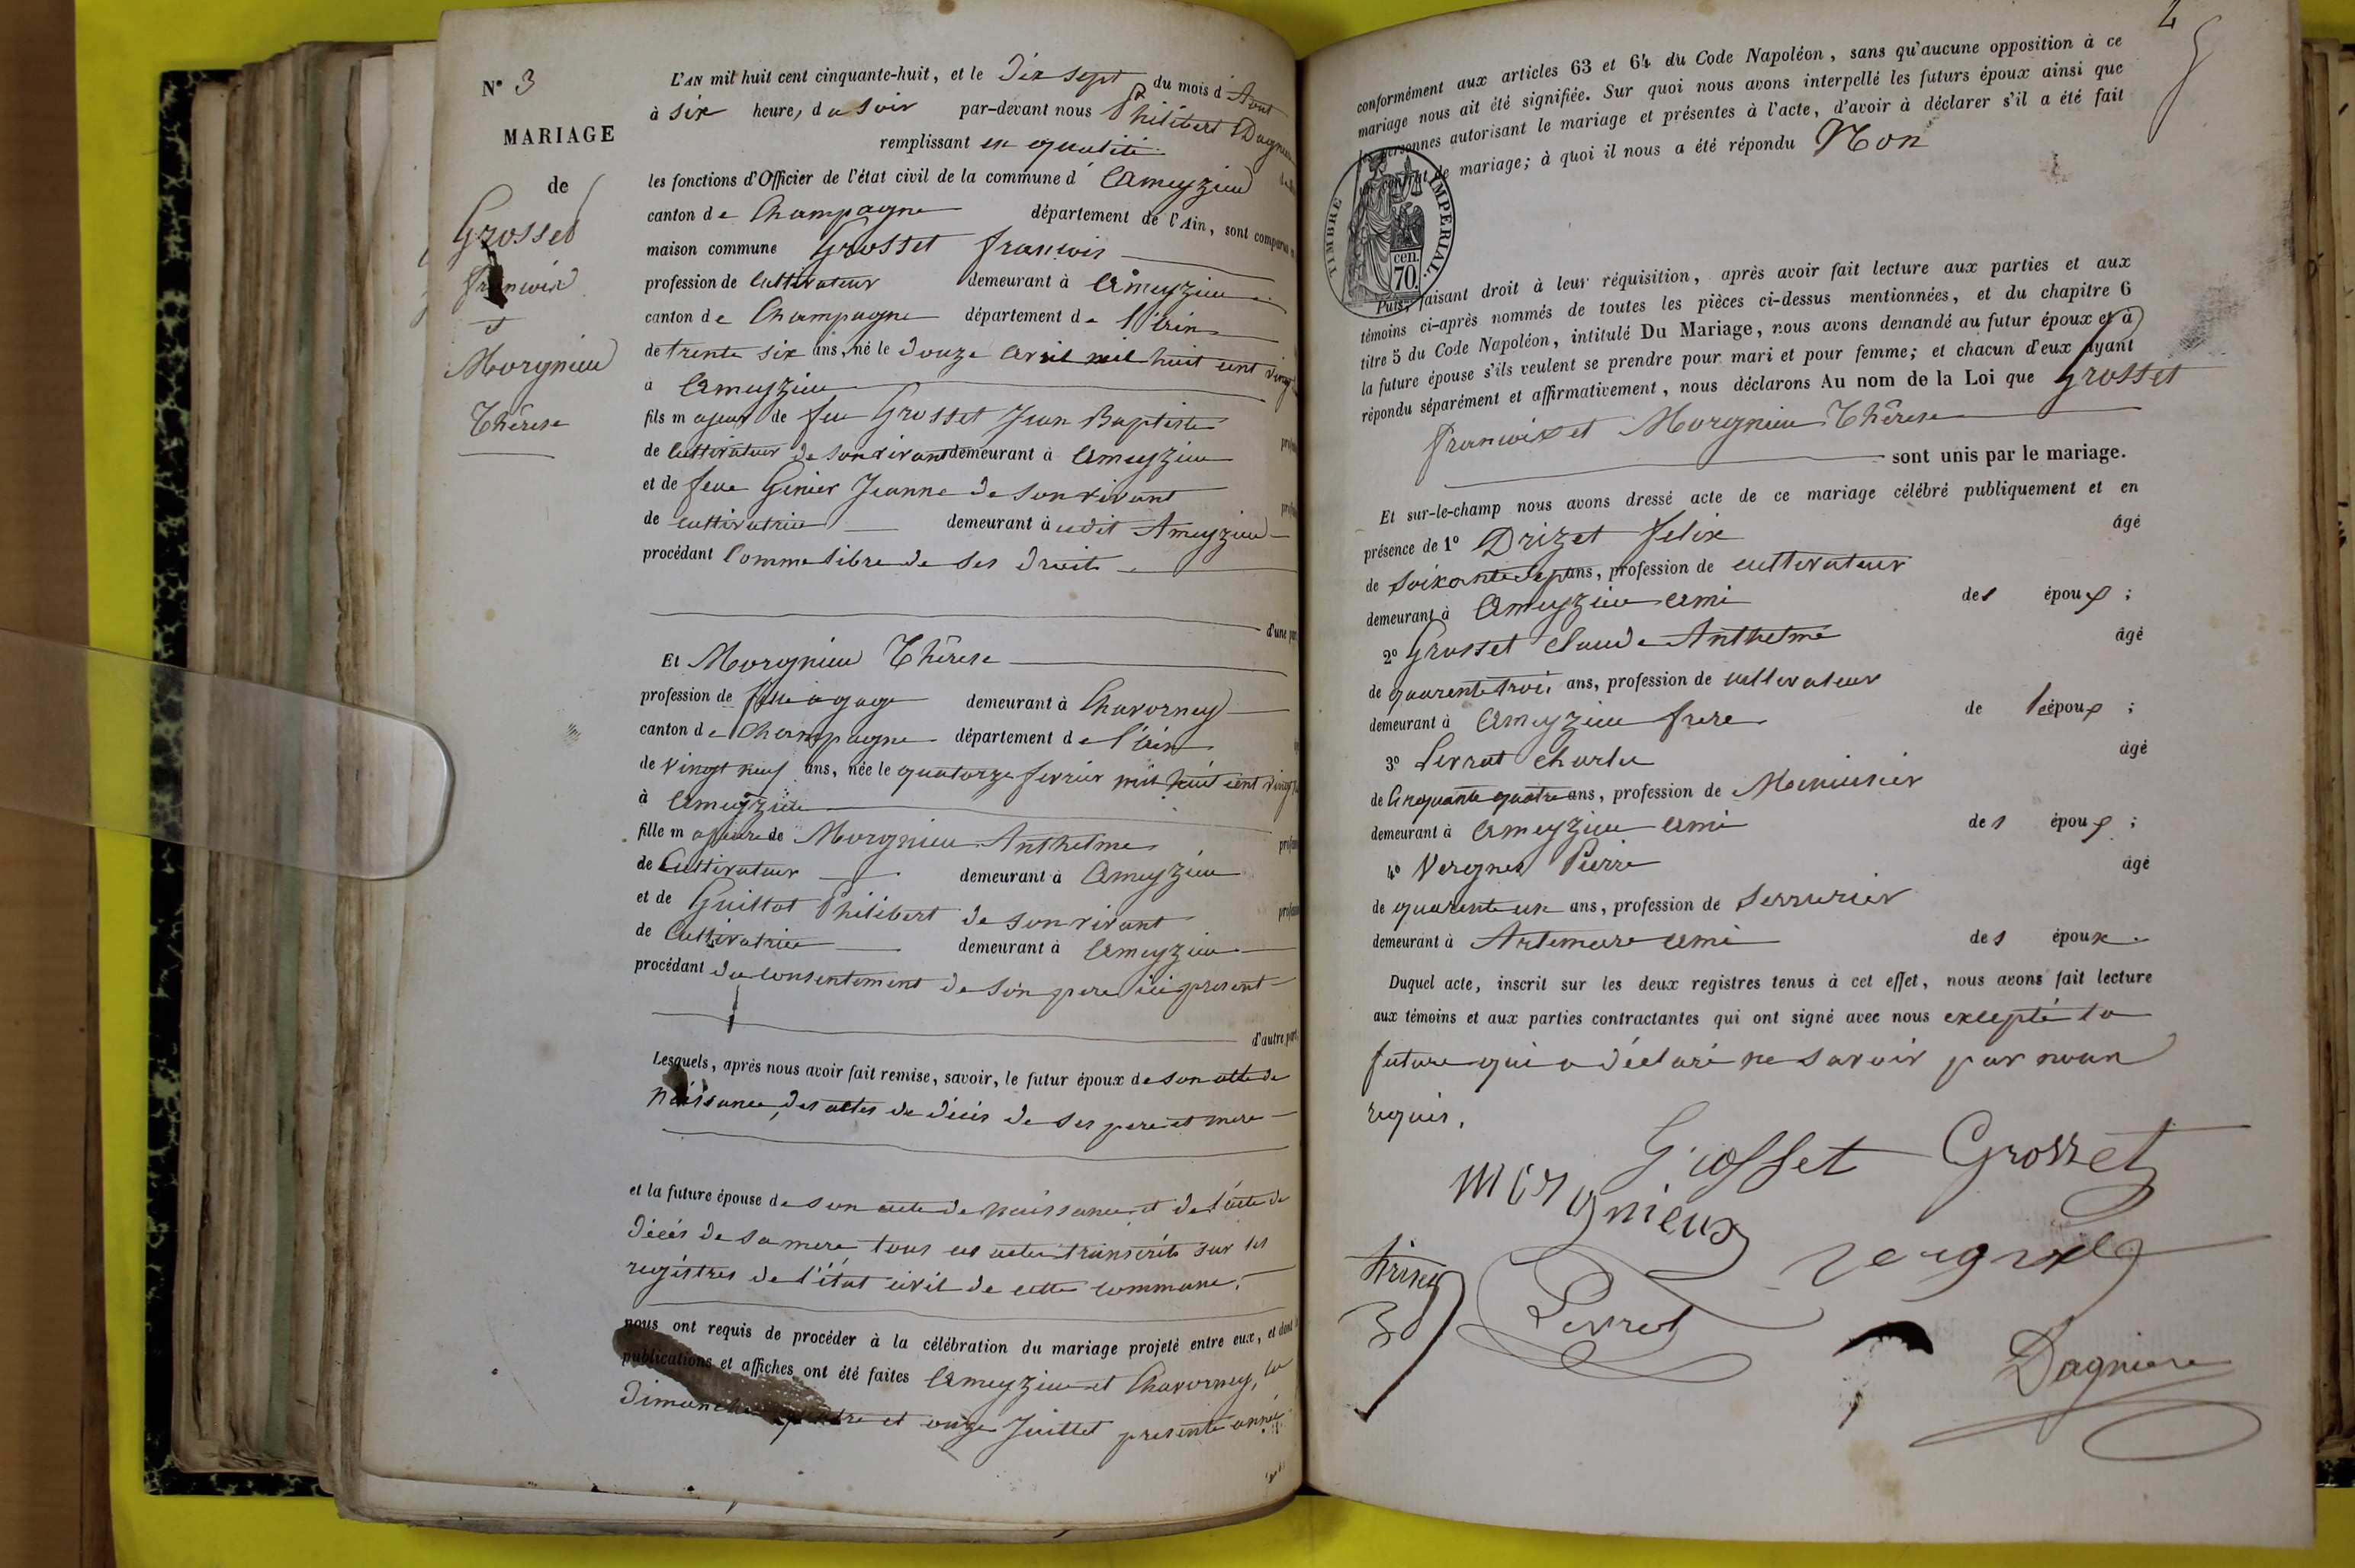 N° 3
MARIAGE
de
Grosset
françois
et
Morgnieu
Thérèse
L'AN mil huit cent cinquante-huit, et le Dix sept du mois d'Aout
à six heures du soir par-devant nous Philibert Dagniere
remplissant en qualité
les fonctions d'Officier de l'état civil de la commune d'Ameyzieu
canton de Champagne département de l'Ain, sont comparus
maison commune Grosset françois
profession de Cultivateur demeurant à Ameyzieu
canton de Champagne département de l'ain
de trente six ans, né le Douze avril mil huit cent vingt
à Ameyzieu
fils majeur de feu Grosset Jean Baptiste
de Cultivateur de son vivant demeurant à Ameyzieu
et de feue Ginier Jeanne de son vivant
de cultivatrice demeurant à udit Ameyzieu
procédant Comme libre de ses droits
d'une part
Et Morgnieu Thérèse
profession de fille à gage demeurant à Chavorney
canton de Champagne département de l'ain
de vingt neuf ans, née le quatorze fevrier mil huit cent vingt
à Ameyzieu
fille majeure de Morgnieu Anthelme
de Cultivateur demeurant à Ameyzieu
et de Guillot Philibert de son vivant
de Cultivatrice demeurant à Ameyzieu
procédant du consentement de son pere ici present
d'autre part,
Lesquels, après nous avoir fait remise, savoir, le futur époux de son acte de
naissance, des actes de décés de ses pere et mere
et la future épouse de son acte de naissance et de l'acte de
décés de sa mere tous ces actes transcrits sur les
registres de l'état civil de cette commune.
nous ont requis de procéder à la célébration du mariage projeté entre eux, et dont
publications et affiches ont été faites Ameyzieu et Chavorney, les
Dimanches quatre et onze Juillet presente année
conformément aux articles 63 et 64 du Code Napoléon, sans qu'aucune opposition à ce
mariage nous ait été signifiée. Sur quoi nous avons interpellé les futurs époux ainsi que
les personnes autorisant le mariage et présentes à l'acte, d'avoir à déclarer s'il a été fait
un contrat de mariage; à quoi il nous a été répondu Non
TIMBRE IMPERIAL.
cen.
70.
Puis, faisant droit à leur réquisition, après avoir fait lecture aux parties et aux
témoins ci-après nommés de toutes les pièces ci-dessus mentionnées, et du chapitre 6
titre 5 du Code Napoléon, intitulé Du Mariage, nous avons demandé au futur époux et à
la future épouse s'ils veulent se prendre pour mari et pour femme; et chacun d'eux ayant
répondu séparément et affirmativement, nous déclarons Au nom de la Loi que Grosset
françois et Morgnieu Thérèse
sont unis par le mariage.
Et sur-le-champ nous avons dressé acte de ce mariage célébré publiquement et en
présence de 1° Drizet felix âgé
de soixante sept ans, profession de cultivateur
demeurant à Ameyzieu ami des époux;
2° Grosset Claude Anthelme âgé
de quarente trois ans, profession de cultivateur
demeurant à Ameyzieu frere de l'époux;
3° Perrat Charles âgé
de Cinquante quatre ans, profession de Menuisier
demeurant à Ameyzieu ami des époux;
4° Vergnes Pierre âgé
de quarente un ans, profession de Serrurier
demeurant à Artemare ami des époux.
Duquel acte, inscrit sur les deux registres tenus à cet effet, nous avons fait lecture
aux témoins et aux parties contractantes qui ont signé avec nous excepté la
future qui a déclaré ne savoir par nous
requis.
Grosset Grosset
morgnieux
Perrat
Dagniere